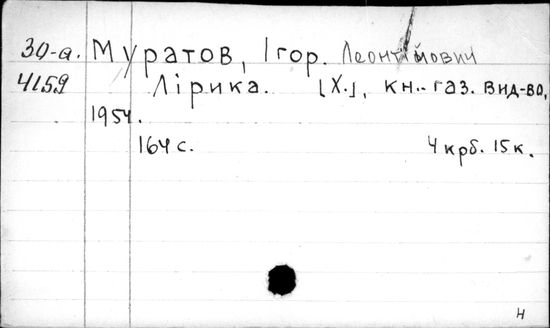 30-а. Муратов, Ігор. Леонтійович
4159 Лірика. [Х.], кн.-газ. вид-во,
1954.
164 с. 4 крб. 15 к.
н